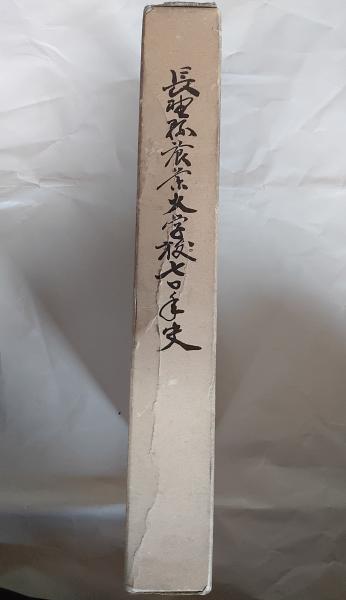 長野県農業大学校七〇年史